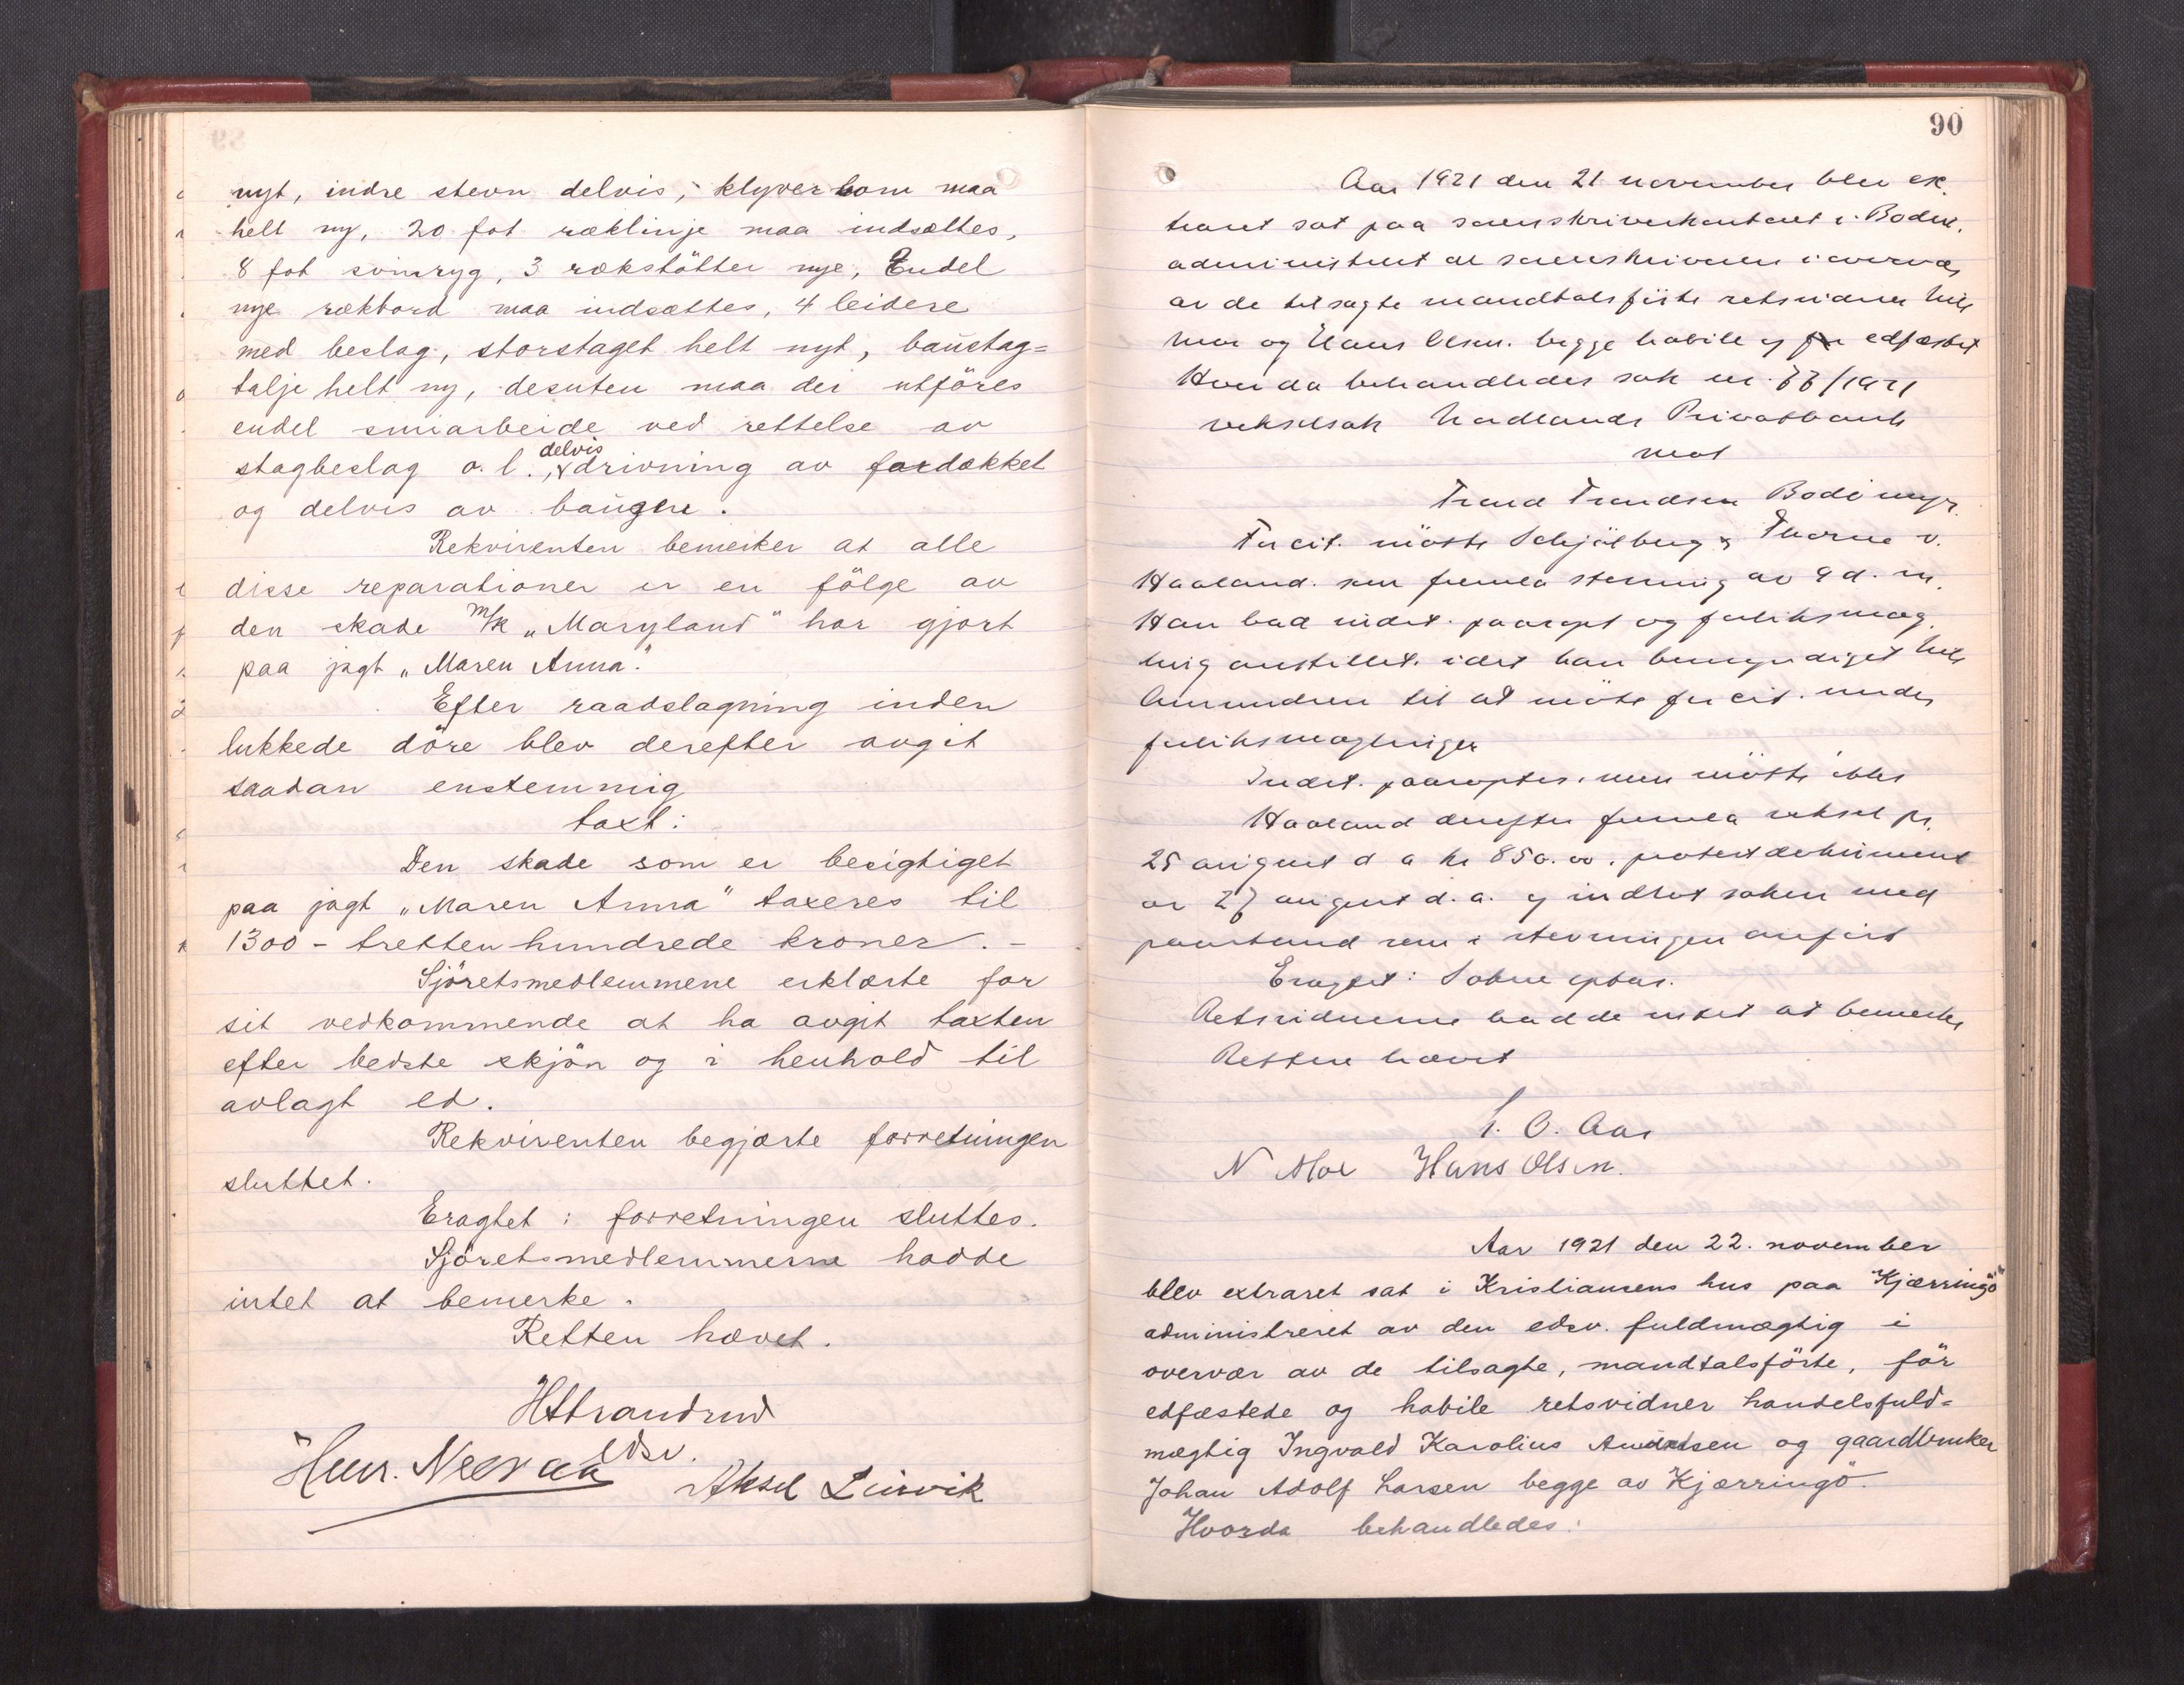 nyt, indre stevn delvis, klyverbom maa
helt ny, 20 fot ræklinje maa indsættes,
8 fot svineryg, 3 rækstötter nye, Endel
nye rækbord maa indsættes, 4 leidere
med beslag, storstaget helt nyt, baustag=
talje helt ny, desuten maa der utföres
endel smiarbeide ved rettelse av
stagbeslag o. l., delvis drivning av fordækket
og delvis av baugen.
Rekvirenten bemerker at alle
disse reparationer er en fölge av
den skade m/k "Maryland" har gjort
paa jagt "Maren Anna".
Efter raadslagning inden
lukkede döre blev derefter avgit
saadan enstemmig
taxt:
Den skade som er besigtiget
paa jagt "Maren Anna" taxeres til
1300 - tretten hundrede kroner. -
Sjöretsmedlemmene erklærte for
sit vedkommende at ha avgit taxten
efter bedste skjön og i henhold til
avlagt ed.
Rekvirenten begjærte forretningen
sluttet.
Eragtet: forretningen sluttes.
Sjöretsmedlemmerne hadde
intet at bemerke.
Retten hævet.
edsv.
Aksel
90
Aar 1921 den 21 november blev ex.
traret sat paa sorenskriverkontoret i Bodin,
administrert av sorenskriveren i overvær
av de tilsagte mandtalsførte retsvidner Nils
Moe og Hans Olsen. begge habile og edfæstet
Hvor da behandledes sak nr. 77/1921
vekselsak Nordlands Privatbank
mot
Trond Trondsen Bodö
For cit. mötte Schjölberg & Thorne v.
Haaland. som fremla stevning av 9 d. m.
Han bad indct. paaropt og forliksmæg,
ling anstillet. idet han bemyndiget Nils
Amundsen til at möte for cit. under
forliksmæglingen
Indct. paaroptes, men mötte ikke
Haaland derefter fremla veksel pr.
25 august d a kr 850.00. protestdokument
av 27 august d. a. og indlot saken med
paastand som i stevningen anfört
Eragtet: Sakne optas.
Retsvidnerne hadde intet at bemerke
Retten hævet
O. Aas
N Moe Hans Olsen.
Aar 1921 den 22. november
blev extraret sat i Kristiansens hus paa Kjærringö
administreret av den edsv. fuldmægtig i
overvær av de tilsagte, mandtalsförte, för
edfæstede og habile retsvidner handelsfuld=
mægtig Ingvald Karolius og gaardbruker
Johan Adolf Larsen begge av Kjærringö.
Hvorda behandledes: